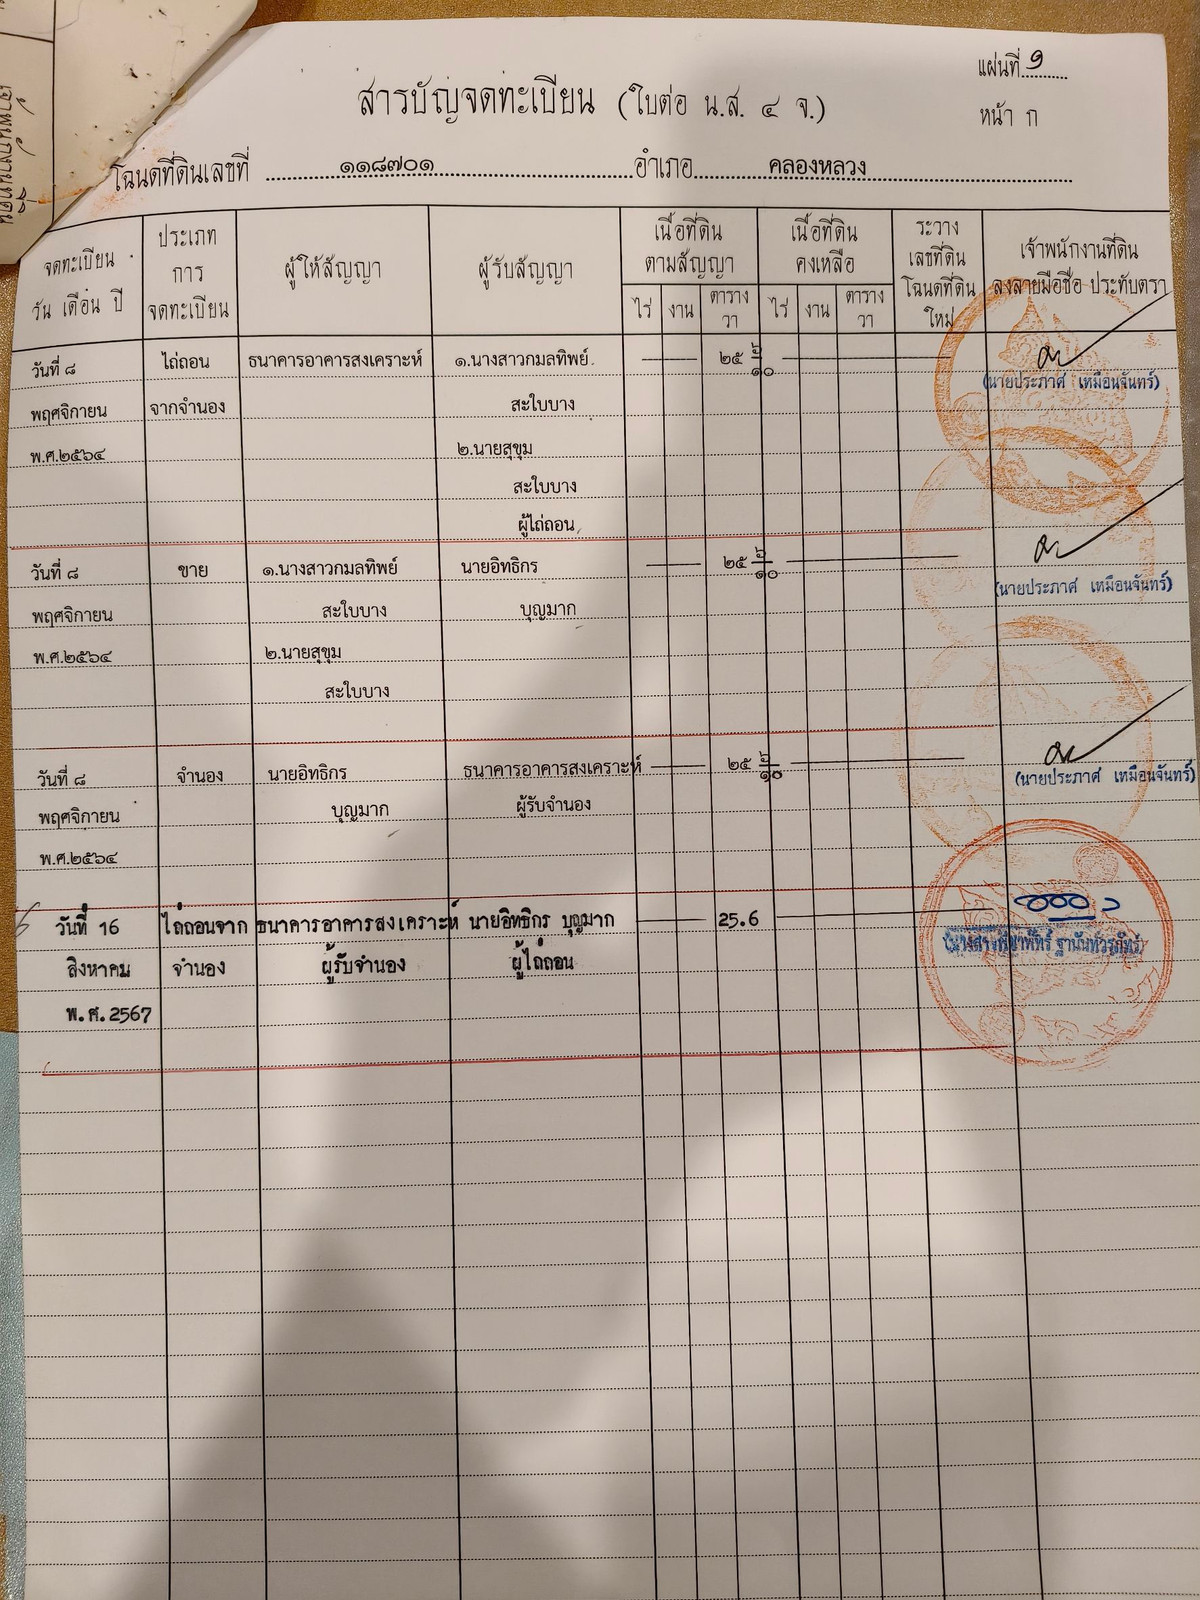 แผ่นที่ ๑
สารบัญจดทะเบียน (ใบต่อ น.ส. ๔ จ.)
หน้า ก
โฉนดที่ดินเลขที่ ๑๑๘๗๐๑ อำเภอ คลองหลวง
จดทะเบียน วัน เดือน ปี
ประเภทการจดทะเบียน
ผู้ให้สัญญา
ผู้รับสัญญา
เนื้อที่ดินตามสัญญา
ไร่ งาน ตารางวา
เนื้อที่ดินคงเหลือ
ไร่ งาน ตารางวา
ระวาง เลขที่ดิน โฉนดที่ดินใหม่
เจ้าพนักงานที่ดิน ลงลายมือชื่อ ประทับตรา
วันที่ ๘ ไถ่ถอน ธนาคารอาคารสงเคราะห์ ๑.นางสาวกมลทิพย์ ๒๕ ๖/๑๐
(นายประภาศ เหมือนจันทร์)
พฤศจิกายน จากจำนอง สะใบบาง
พ.ศ.๒๕๖๔ ๒.นายสุขุม
สะใบบาง
ผู้ไถ่ถอน
วันที่ ๘ ขาย ๑.นางสาวกมลทิพย์ นายอิทธิกร ๒๕ ๖/๑๐
(นายประภาศ เหมือนจันทร์)
พฤศจิกายน สะใบบาง บุญมาก
พ.ศ.๒๕๖๔ ๒.นายสุขุม
สะใบบาง
วันที่ ๘ จำนอง นายอิทธิกร ธนาคารอาคารสงเคราะห์ ๒๕ ๖/๑๐
(นายประภาศ เหมือนจันทร์)
พฤศจิกายน บุญมาก ผู้รับจำนอง
พ.ศ.๒๕๖๔
วันที่ 16 ไถ่ถอนจาก ธนาคารอาคารสงเคราะห์ นายอิทธิกร บุญมาก 25.6
สิงหาคม จำนอง ผู้รับจำนอง ผู้ไถ่ถอน
พ.ศ.2567